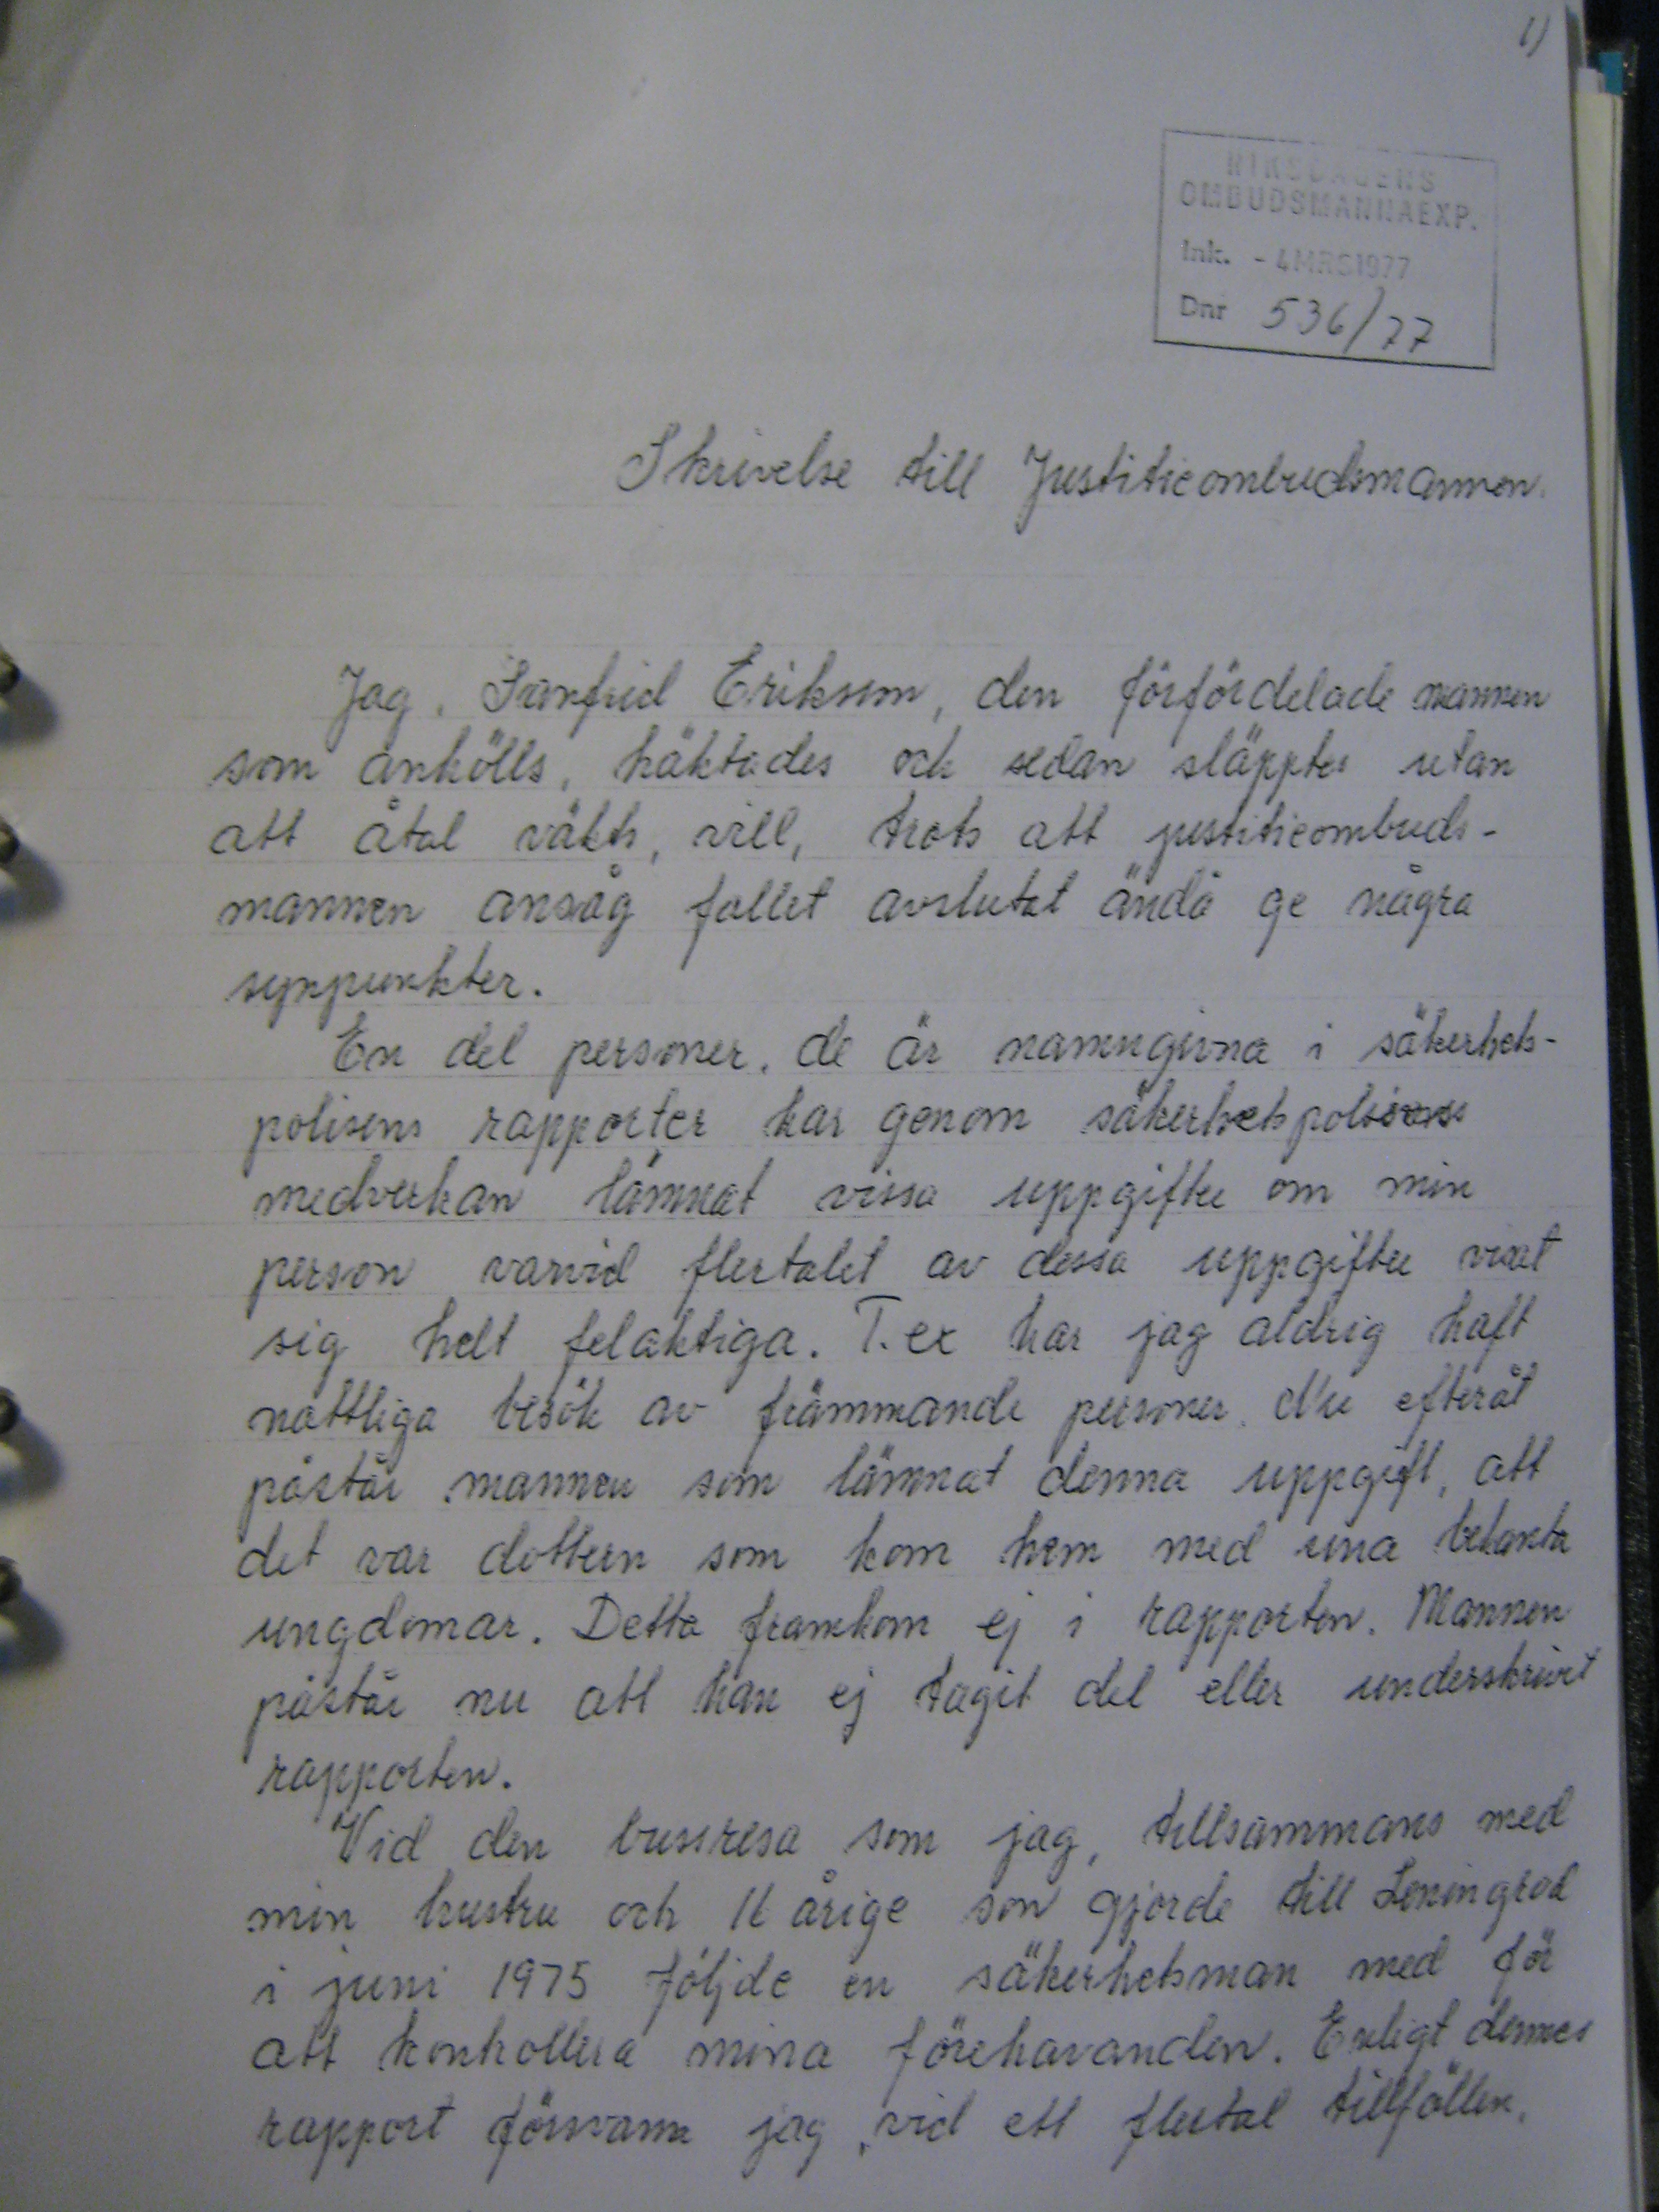 1)
RIKSDAGENS
OMBUDSMANNAEXP.
Ink. - 4 MRS 1977
Dnr 536/77
Skrivelse till Justitieombudsmannen.
Jag, Sanfrid Eriksson, den förfördelade mannen
som anhölls, häktades och sedan släpptes utan
att åtal väkts, vill, trots att justitieombuds-
mannen ansåg fallet avslutat ändå ge några
synpunkter.
En del personer, de är namngivna i säkerhets-
polisens rapporter har genom säkerhetspolisens
medverkan lämnat vissa uppgifter om min
person varvid flertalet av dessa uppgifter visat
sig helt felaktiga. T.ex har jag aldrig haft
nattliga besök av främmande personer. Nu efteråt
påstår mannen som lämnat denna uppgift, att
det var dottern som kom hem med sina bekanta
ungdomar. Detta framkom ej i rapporten. Mannen
påstår nu att han ej tagit del eller underskrivit
rapporten.
Vid den bussresa som jag, tillsammans med
min hustru och 11 årige son gjorde till Leningrad
i juni 1975 följde en säkerhetsman med för
att kontrollera mina förehavanden. Enligt dennes
rapport försvann jag, vid ett flertal tillfällen,